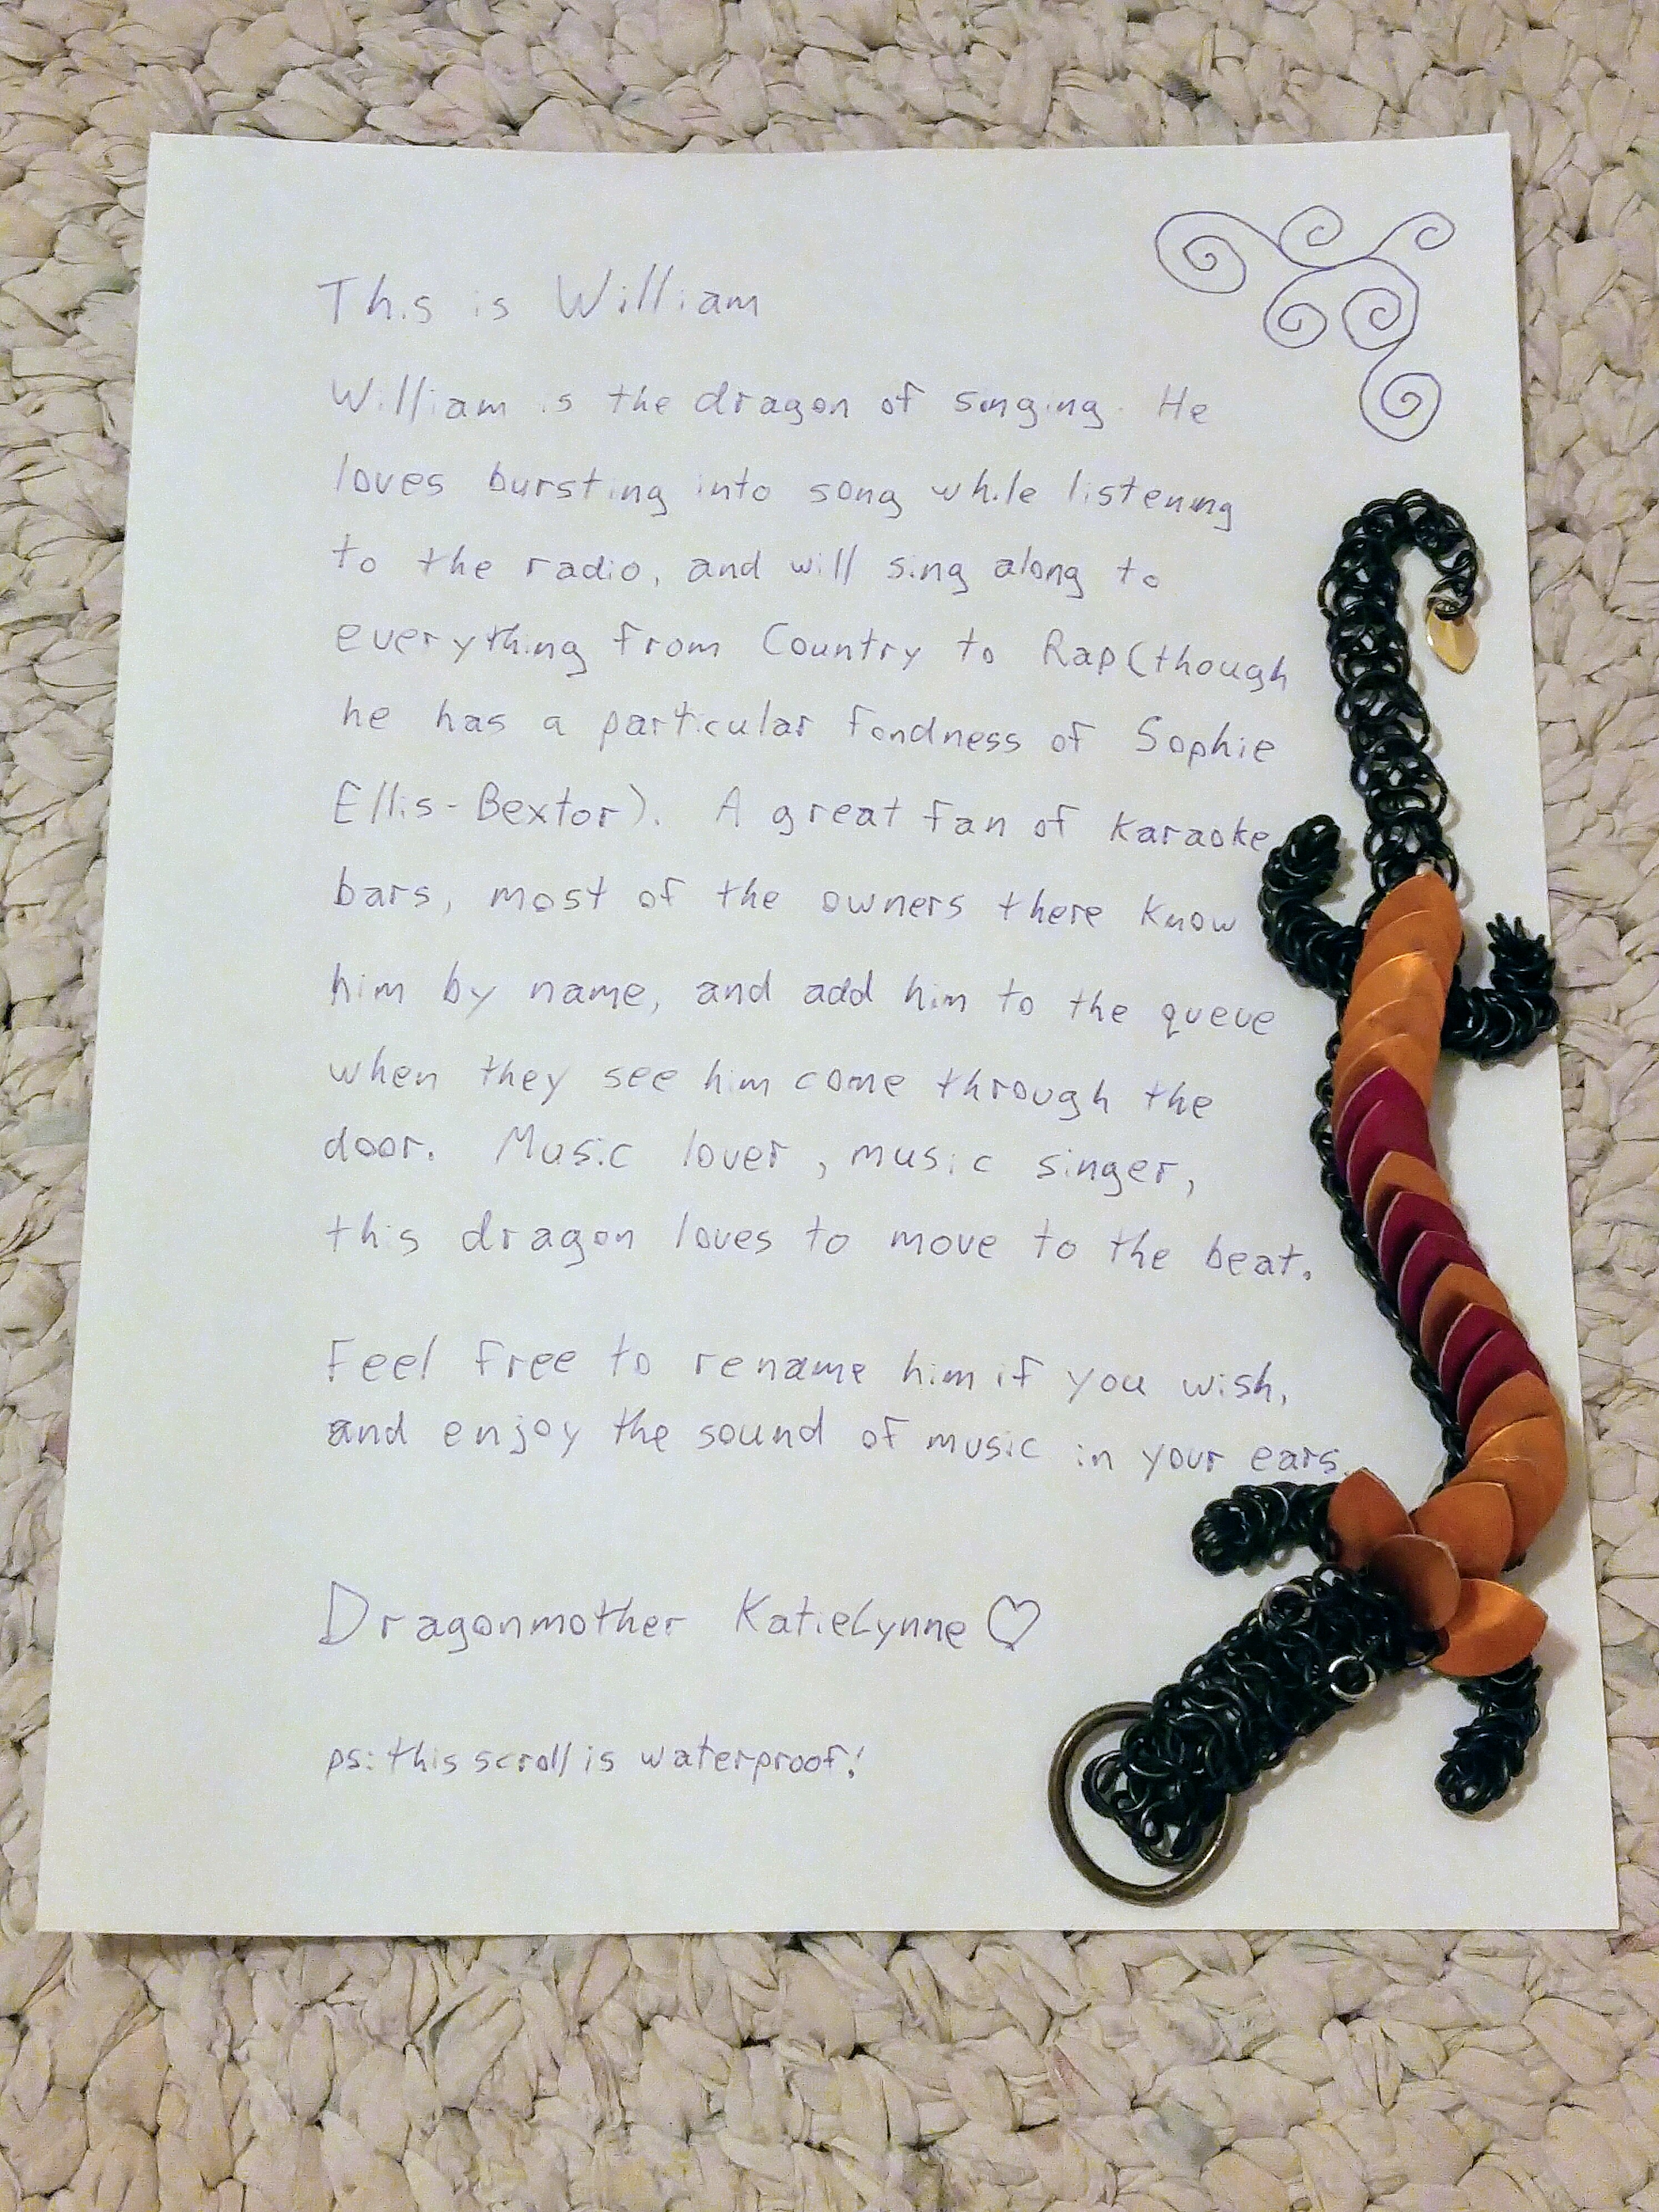 This is William
William is the dragon of singing. He
loves bursting into song while listening
to the radio, and will sing along to
everything from Country to Rap(though
he has a particular fondness of Sophie
Ellis-Bextor). A great fan of Karaoke
bars, most of the owners there know
him by name, and add him to the queue
when they see him come through the
door. Music lover, music singer,
this dragon loves to move to the beat.
Feel free to rename him if you wish,
and enjoy the sound of music in your ears.
Dragonmother KatieLynne♡
ps: this scroll is waterproof!